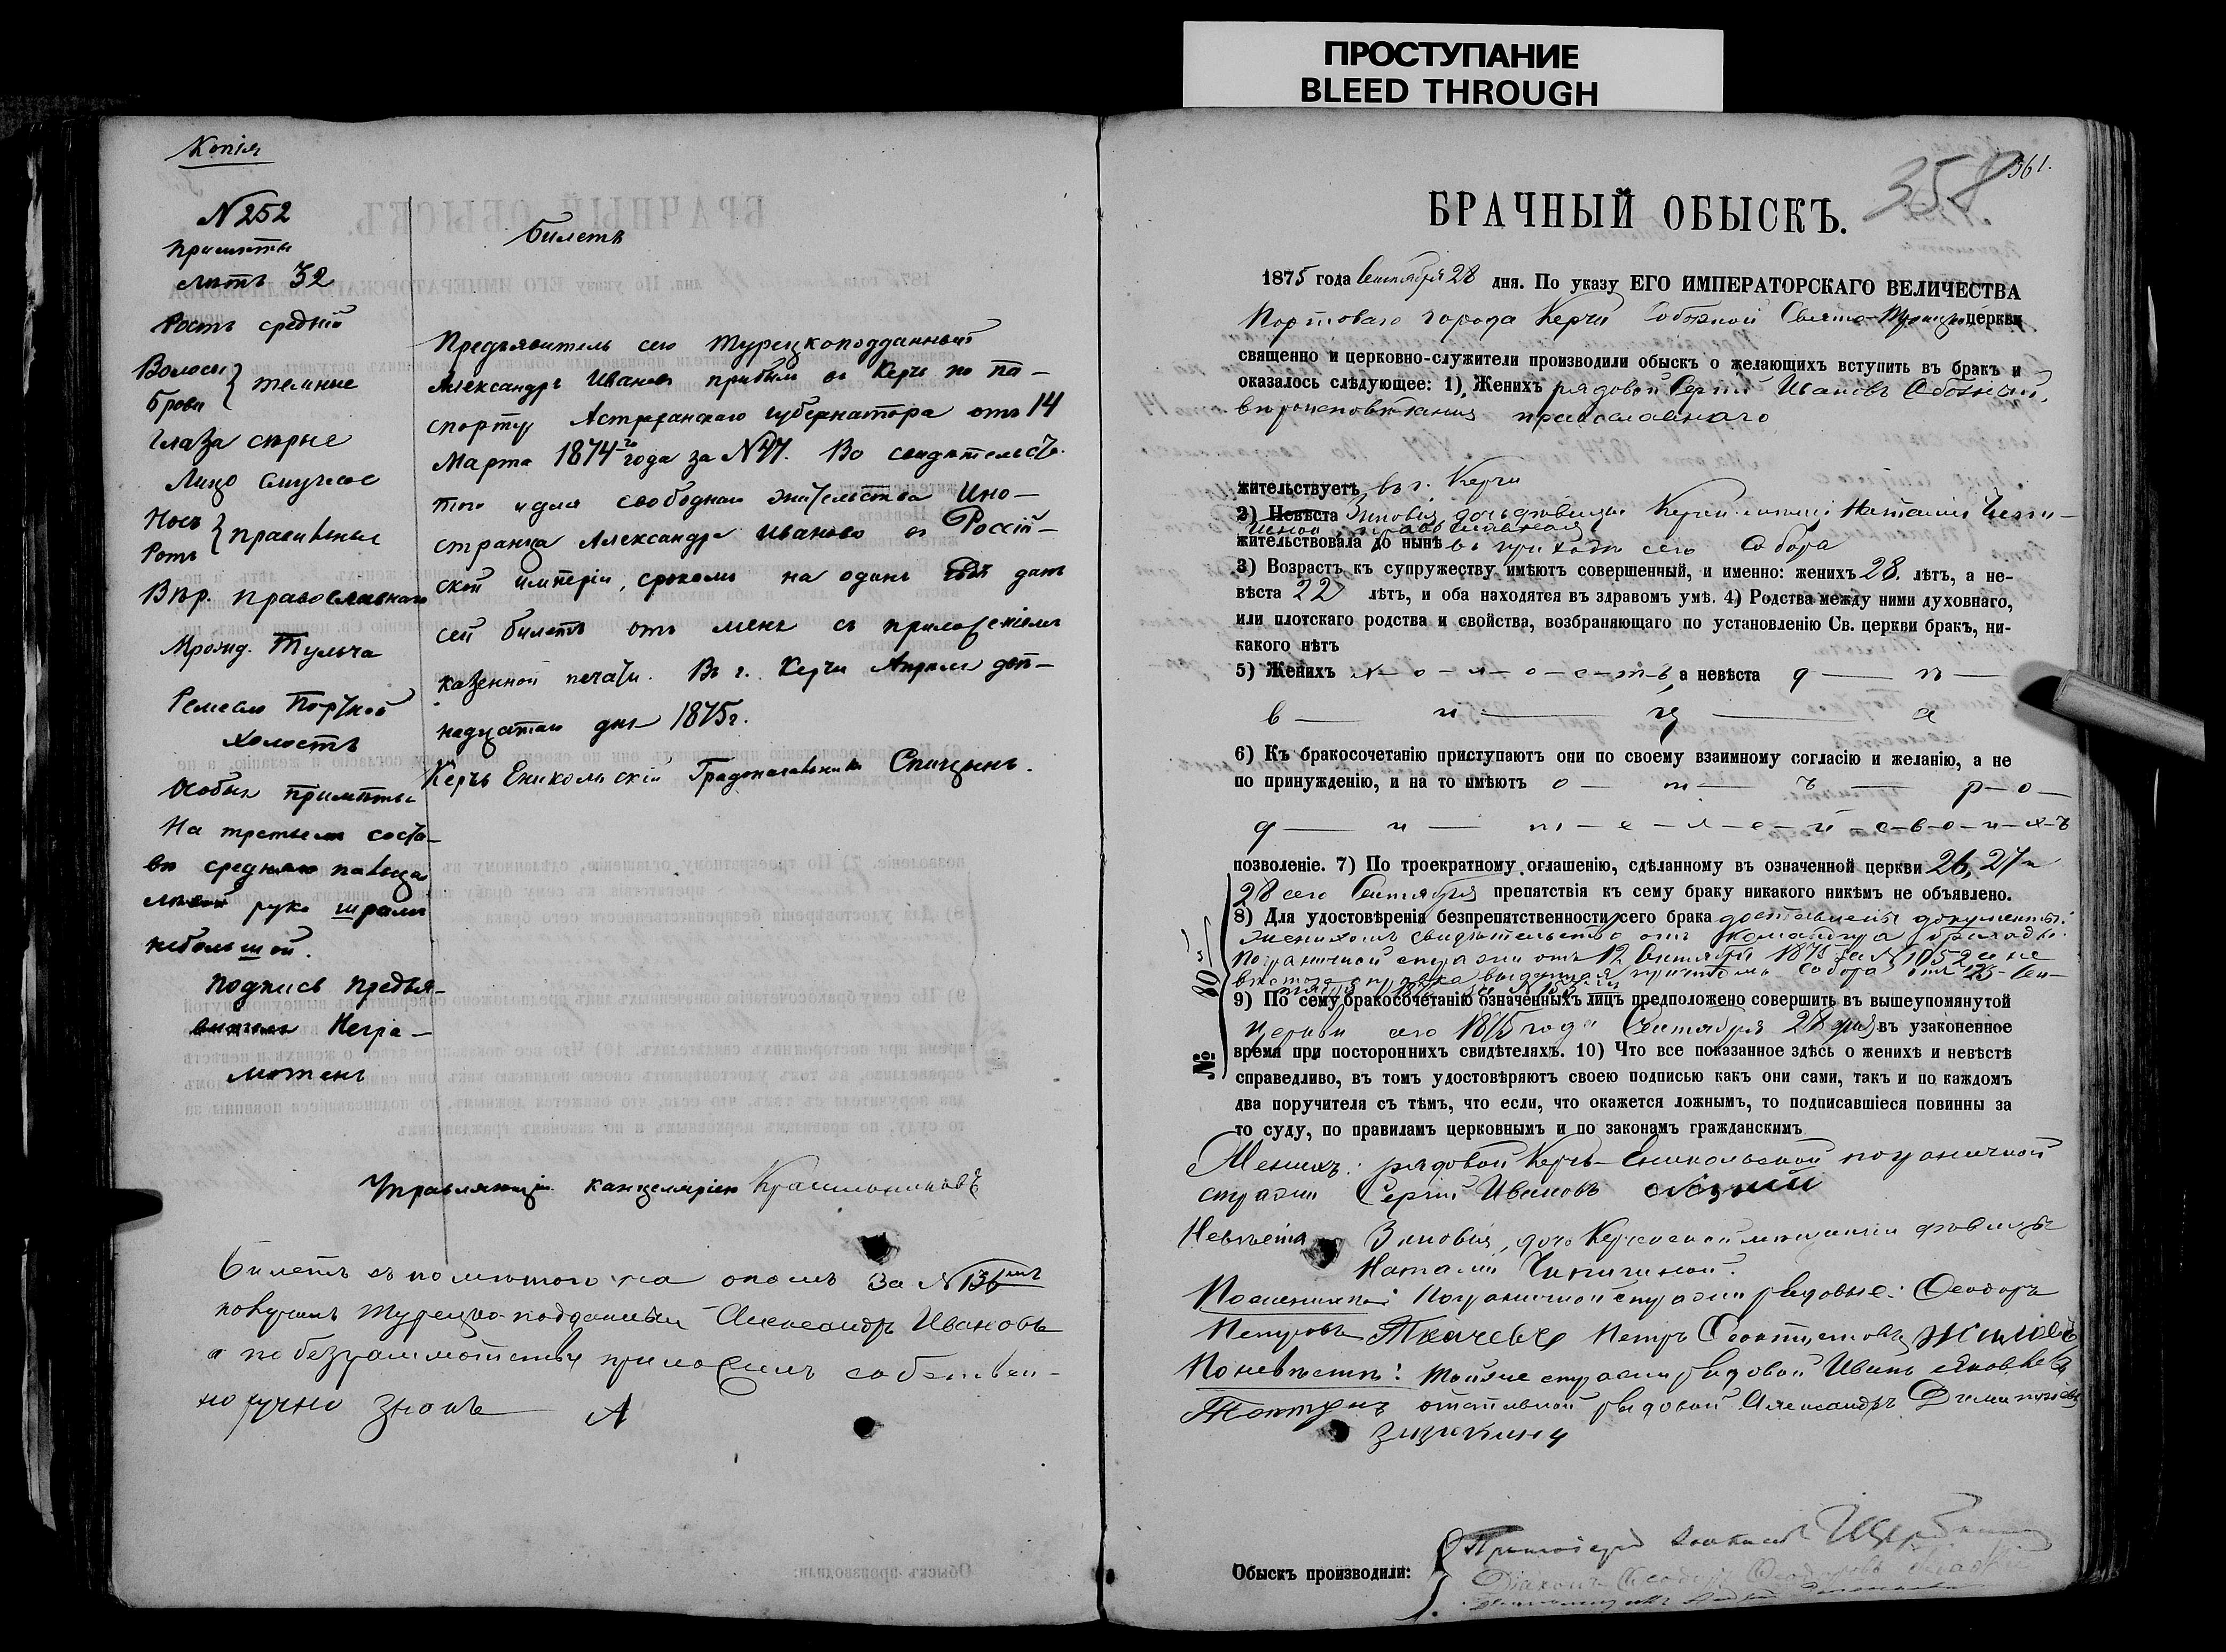 ПРОСТУПАНИЕ
BLEED THROUGH
Копія
N 252
Примѣты
Лѣтъ 32
Ростъ средній
Волосы
Брови } темные
Глаза сѣрые
Лицо смуглое
Носъ
Ротъ } правильные
Вѣр. православнаго
Мрожд. Тульча
Ремесло Портной
холостъ
Особыя примѣты
На третьемъ соста-
вѣ средняго пальца
лѣвой руки шрамъ
небольшой.
Подпись предъя-
вителя Негра-
мотенъ
Билетъ
Предъявитель сего турецкоподданный
Александръ Ивановъ прибылъ въ Керчь по па-
спорту Астраханскаго губернатора отъ 14
Марта 1874го года за N 47. Во свидѣтельст-
то и для свободнаго жительства Ино-
странца Александра Иванова въ Россій-
ской имперіи, срокомъ на одинъ годъ данъ
сей билетъ отъ меня съ приложеніемъ
казенной печати. Въ г. Керчи Апрѣля две-
надцатаго дня 1875г.
Керчь Еникольскій Градоначальникъ Спицынъ.
Управляющій канцеляріею Красильниковъ
Билетъ съ помѣтою на ономъ за N 136
получилъ турецко-подданный Александръ Ивановъ
а по безграмотству приложилъ собствен-
норучно знакъ А
361.
358
БРАЧНЫЙ ОБЫСКЪ.
1875 года Сентября 28 дня. По указу ЕГО ИМПЕРАТОРСКАГО ВЕЛИЧЕСТВА
Портоваго города Керчи Соборной Свято-Троицкой церкви
священно и церковно-служители производили обыскъ о желающихъ вступить въ бракъ и
оказалось слѣдующее: 1), Женихъ рядовой Сергій Ивановъ
вѣроисповѣданія православнаго
жительствуетъ въ г. Керчи
2) Невѣста Зиновія, дочь дѣвицы Наталіи
православная
жительствовала до нынѣ въ приходѣ сего Собора
3) Возрастъ къ супружеству имѣютъ совершенный, и именно: женихъ 28. лѣтъ, а не-
вѣста 22 лѣтъ, и оба находятся въ здравомъ умѣ. 4) Родства между ними духовнаго,
или плотскаго родства и свойства, возбраняющаго по установленію Св. церкви бракъ, ни-
какого нѣтъ
5) Женихъ х-о-л-о-с-т-ъ, а невѣста д — ѣ —
в — и — ц — а
6) Къ бракосочетанію приступаютъ они по своему взаимному согласію и желанію, а не
по принужденію, и на то имѣютъ о — т — ъ — р-о-
д — и — т-е-л-е-й с-в-о-и-х-ъ
позволеніе. 7) По троекратному оглашенію, сдѣланному въ означенной церкви 26, 27 и
28 сего Сентября препятствія къ сему браку никакого никѣмъ не объявлено.
8) Для удостовѣренія безпрепятственности сего брака доставлены документы:
женихомъ свидѣтельство отъ Командира бригады
пограничной стражи отъ 12 Сентября 1875 за N 1052 а не
вѣстою справка выданная причтомъ Собора отъ 23 Сен-
9) По сему бракосочетанію означенныхъ лицъ предположено совершить въ вышеупомянутой
церкви сего 1875 года Сентября 28 дня въ узаконенное
время при постороннихъ свидѣтеляхъ. 10) Что все показанное здѣсь о женихѣ и невѣстѣ
справедливо, въ томъ удостовѣряютъ своею подписью какъ они сами, такъ и по каждомъ
два поручителя съ тѣмъ, что если, что окажется ложнымъ, то подписавшіеся повинны за
то суду, по правиламъ церковнымъ и по законамъ гражданскимъ
№ 80й
Женихъ: рядовой Керчь-Еникольской пограничной
стражи Сергій Ивановъ
Невѣста Зиновія, дочь Керченской мѣщанки дѣвицы
Наталіи
По женихѣ: Пограничной стражи рядовые: Ѳеодоръ
Петровъ Ткачевъ Петръ
По невѣстѣ: тойже стражи рядовой Иванъ Яковлевъ
отставной рядовой Александръ
Обыскъ производили: { Протоіерей
Діаконъ Ѳеодоръ